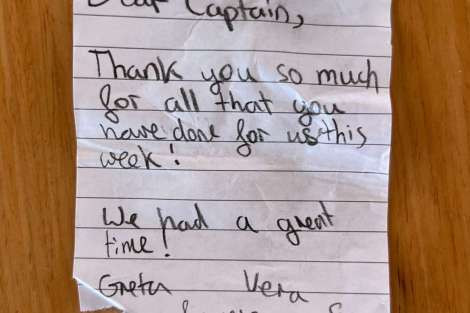 Dear Captain,
Thank you so much
for all that you
have done for us this
week!
We had a great
time!
Greta Vera